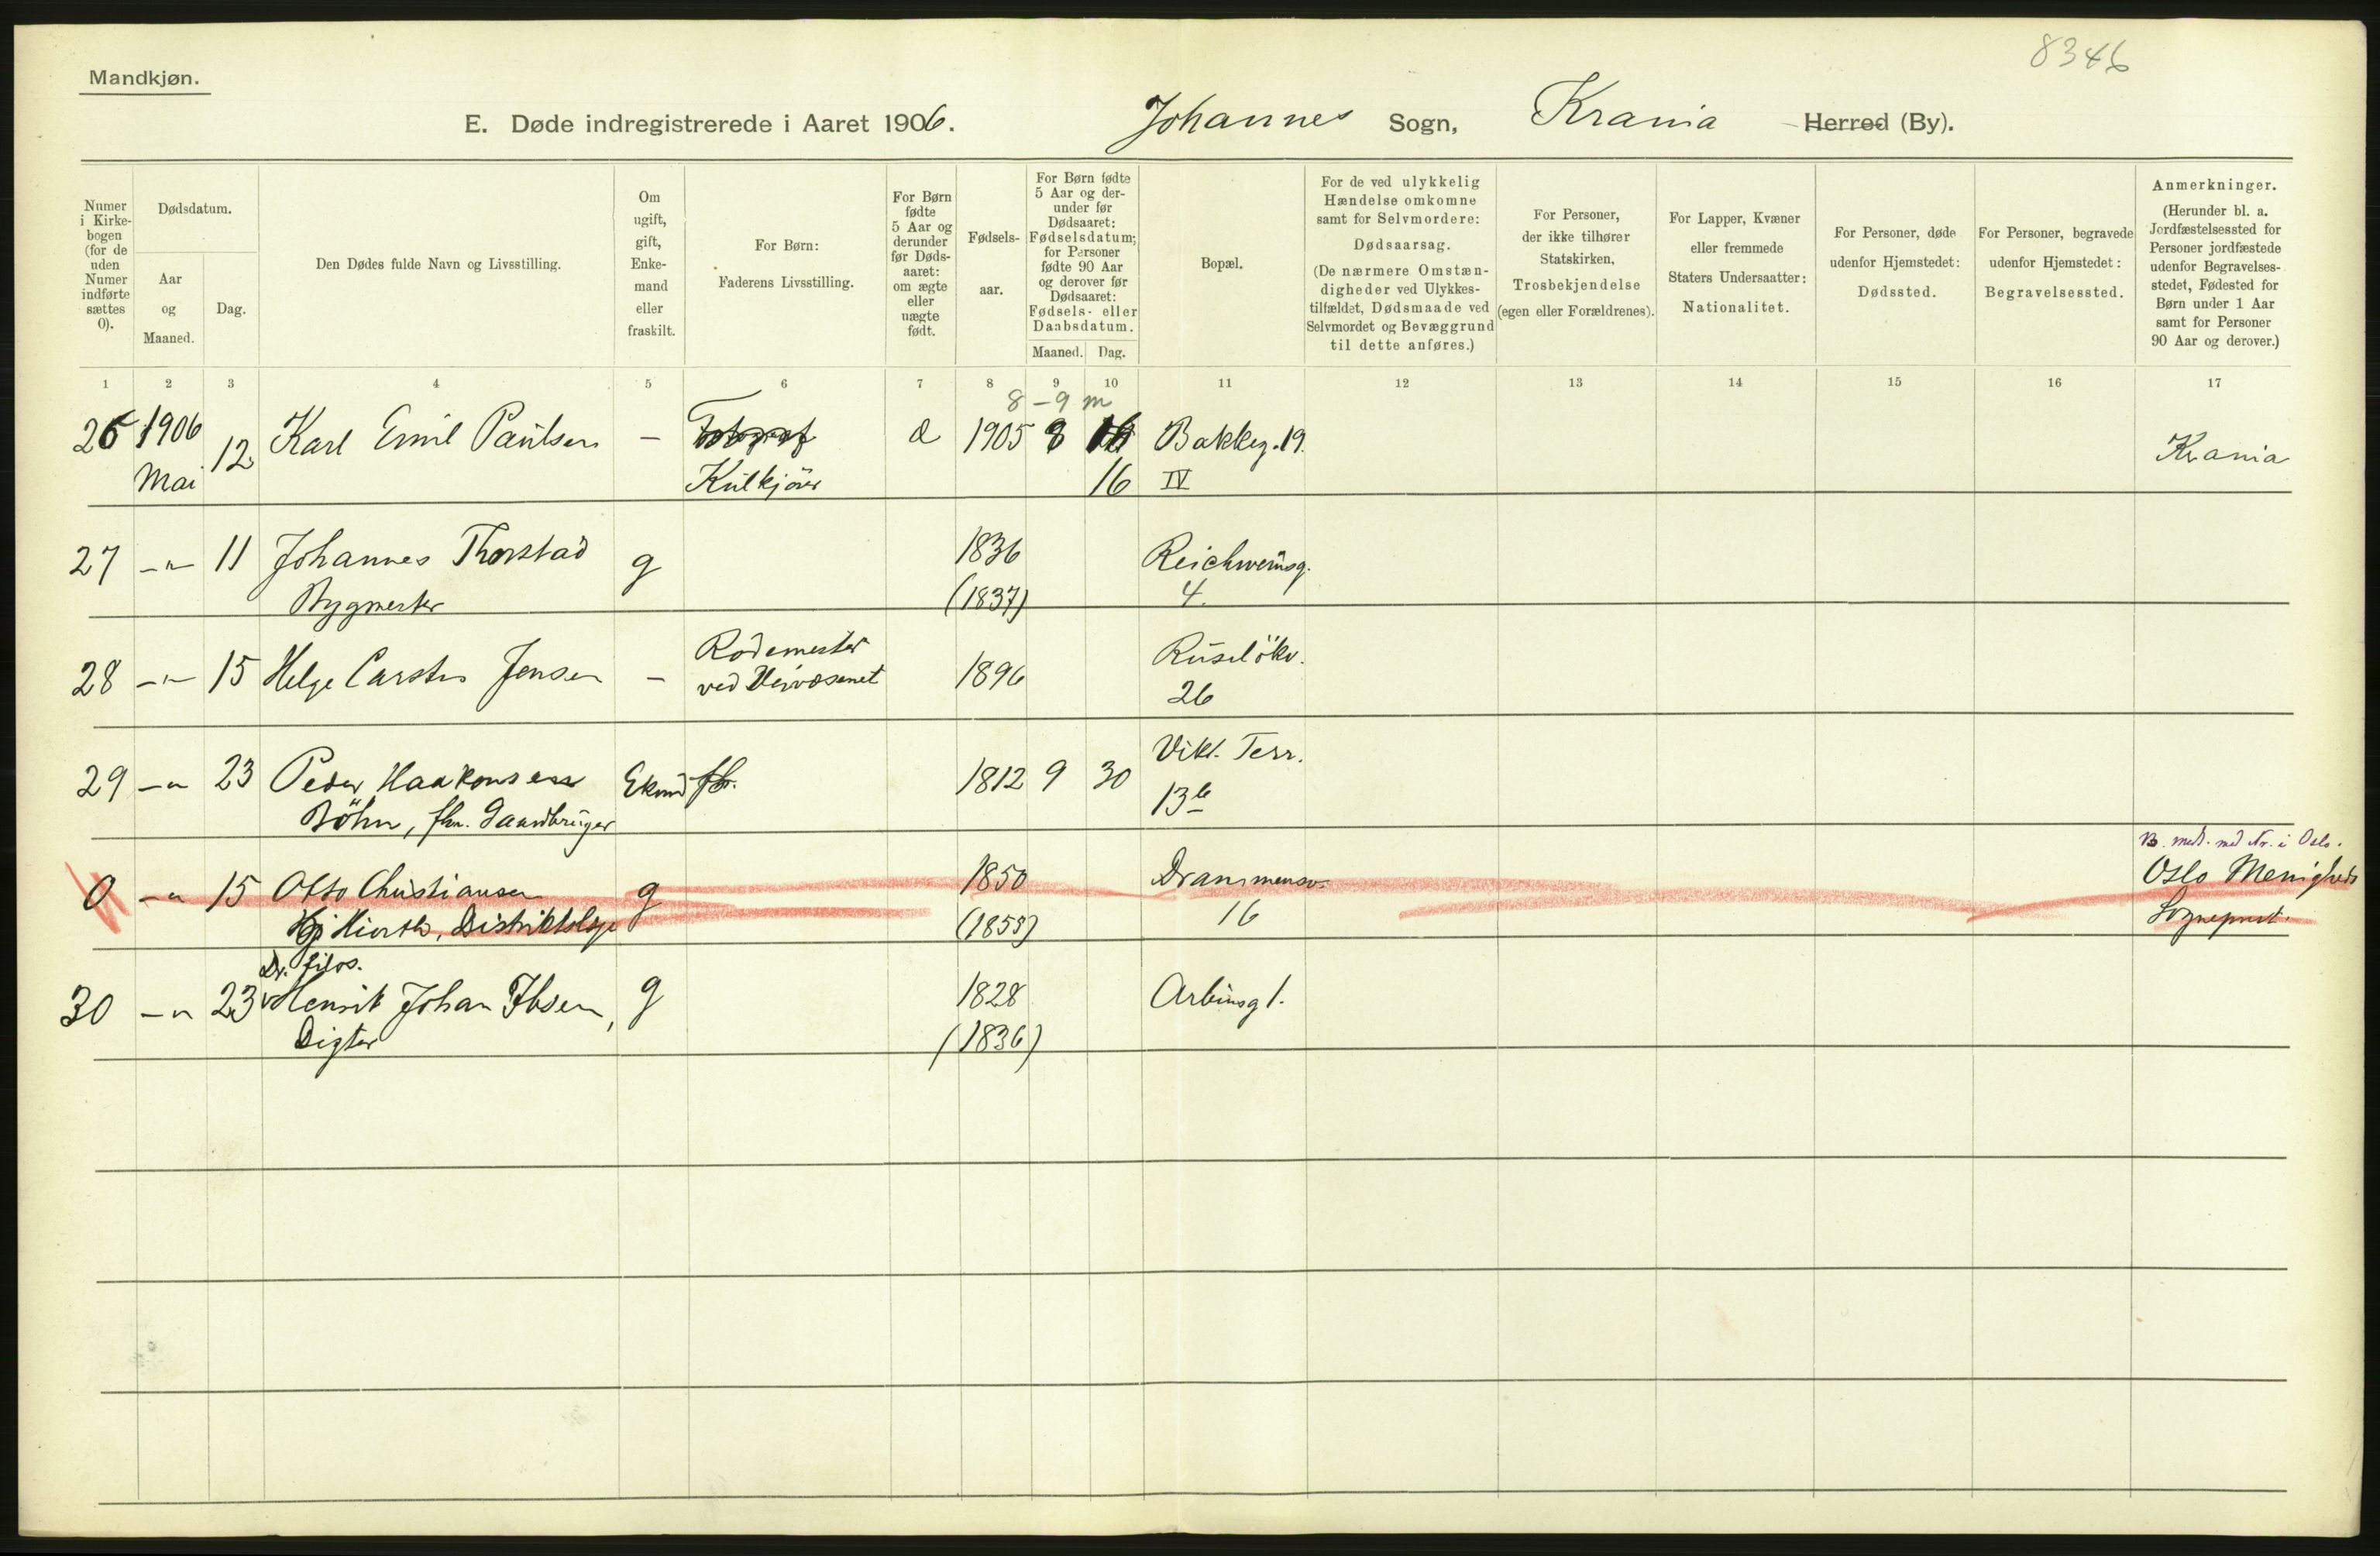 8346
Mandkjøn.
E. Døde indregistrerede i Aaret 1906. Johannes Sogn, Krania Herred (By).
Numer i Kirke-bogen (for de uden Numer indførte sættes 0).
Dødsdatum.
Aar og Maaned.
Dag.
Den Dødes fulde Navn og Livsstilling.
Om ugift, gift, Enke-mand eller fraskilt.
For Børn:
Faderens Livsstilling.
For Børn fødte 5 Aar og derunder før Døds-aaret: om ægte eller uægte født.
Fødsels-aar.
For Børn fødte 5 Aar og der-under før Dødsaaret: Fødselsdatum; for Personer fødte 90 Aar og derover før Dødsaaret: Fødsels- eller Daabsdatum.
Maaned. Dag.
Bopæl.
For de ved ulykkelig Hændelse omkomne samt for Selvmordere:
Dødsaarsag.
(De nærmere Omstæn-digheder ved Ulykkes-tilfældet, Dødsmaade ved Selvmordet og Bevæggrund til dette anføres.)
For Personer, der ikke tilhører Statskirken, Trosbekjendelse (egen eller Forældrenes).
For Lapper, Kvæner eller fremmede Staters Undersaatter: Nationalitet.
For Personer, døde udenfor Hjemstedet: Dødssted.
For Personer, begravede udenfor Hjemstedet: Begravelsessted.
Anmerkninger.
(Herunder bl. a. Jordfæstelsessted for Personer jordfæstede udenfor Begravelses-stedet, Fødested for Børn under 1 Aar samt for Personer 90 Aar og derover.)
1 2 3 4 5 6 7 8 9 10 11 12 13 14 15 16 17
8 – 9 m
26 1906 12 Karl Emil Paulsen – Fotograf 1905 8 Bakkeg. 19. Krania
Mai Kulkjører 16 IV
27 –"– 11 Johannes Thorstad g 1836 Reichweinsg.
Bygmester (1837) 4.
28 –"– 15 Helge Carsten Jensen – Rodemester 1896 Ruseløkv.
ved Veivæsenet 26
29 –"– 23 Peder Haakonsen Ekmd 1812 9 30 Vikt. Terr.
Böhn, fhv. Gaardbruger 13b
med Nr. i Oslo.
0 –"– 15 Otto Christiansen g 1850 Drammensv. Oslo Menigheds
Hiorth, Distriktslæge (1855) 16 Sogneprest.
Dr. filos.
30 –"– 23 Henrik Johan Ibsen, g 1828 Arbinsg 1.
Digter (1836)